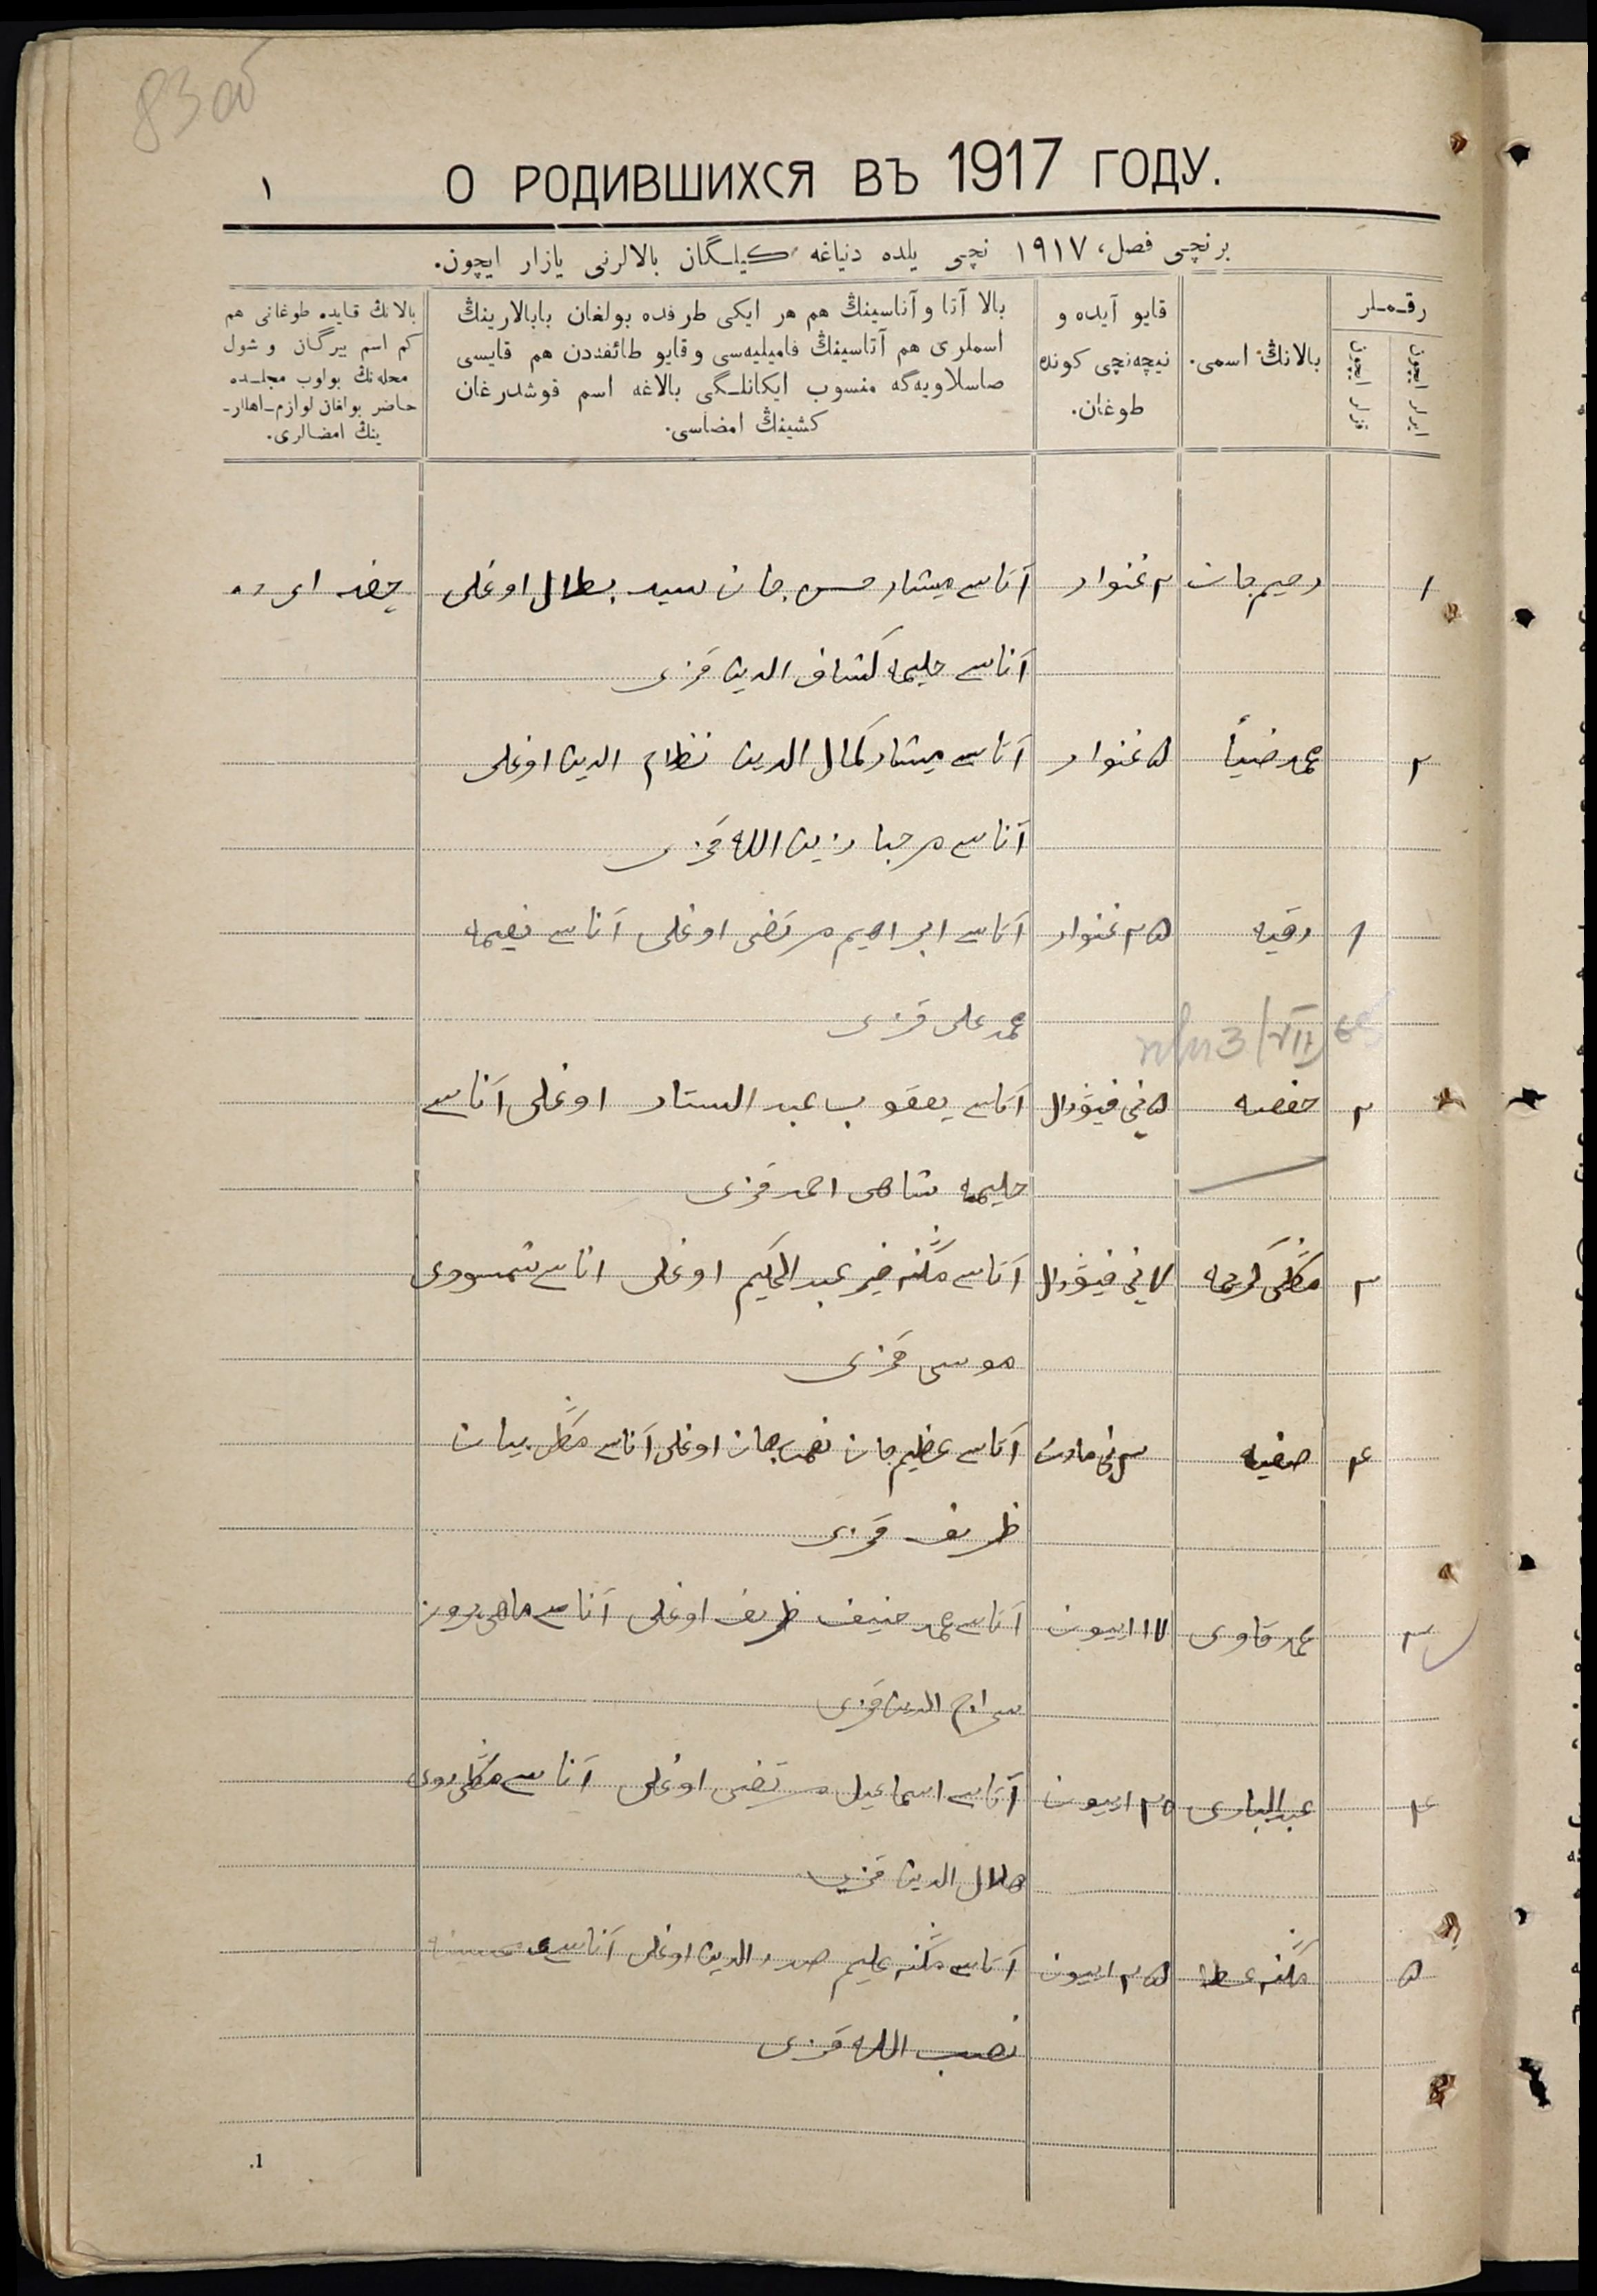 83 об
О РОДИВШИХСЯ ВЪ 1917 ГОДУ.
١
برنچی فصل، ١٩١٧ نچی یلده دنیاغه کیلگان بالالرنی یازار ایچون.
رقملر
ایرلر ایچون
قزلر ایچون
بالانڭ اسمی.
قایو آیده و
نیچه‌نچی کونده
طوغان.
بالا آتا و آناسینڭ هم هر ایکی طرفده بولغان بابالارینڭ
اسملری هم آتاسینڭ فامیلیه‌سی و قایو طائفه‌دن هم قایسی
صاسلاویه‌گه منسوب ایکانلگی بالاغه اسم قوشدرغان
کشینڭ امضاسی.
بالانڭ قایده طوغانی هم
کم اسم بیرگان و شول
محله‌نڭ بولوب مجلسده
حاضر بولغان لوازم اهللار
ینڭ امضالری.
١ رحیم جان ٢ غنوار آتاسی میشار حسن جان سید بطال اوغلی
آناسی حلیمه کشاف الدین قزی
٢ محمد ضیأ ٥ غنوار آتاسی میشار کمال الدین نظام الدین اوغلی
آناسی مرحبا زین الله قزی
١ رقیه ٢٥ غنوار آتاسی ابراهیم مرتضی اوغلی آناسی نعیمه
محمد علی قزی
3/VII
٢ حفصه ٥ نچی فیورال آتاسی یعقوب عبد الستار اوغلی آناسی
حلیمه شاهی احمد قزی
٣ ٧ نچی فیورال آتاسی عبد الحکیم اوغلی اناسی
موسی قزی
٤ صفیه ٣ نچی مارت آتاسی عظیم جان اوغلی آناسی
ظریف قزی
٣ محمد قاوی ١٧ اییون آتاسی محمد حنیف ظریف اوغلی آناسی ماهی پروز
سراج الدین قزی
٤ عبد الباری ٢٥ اییون آتاسی اسماعیل مرتضی اوغلی آناسی
هلال الدین قزی
٥ ٢٥ اییون آتاسی صدر الدین اوغلی آناسی
الله قزی
1.